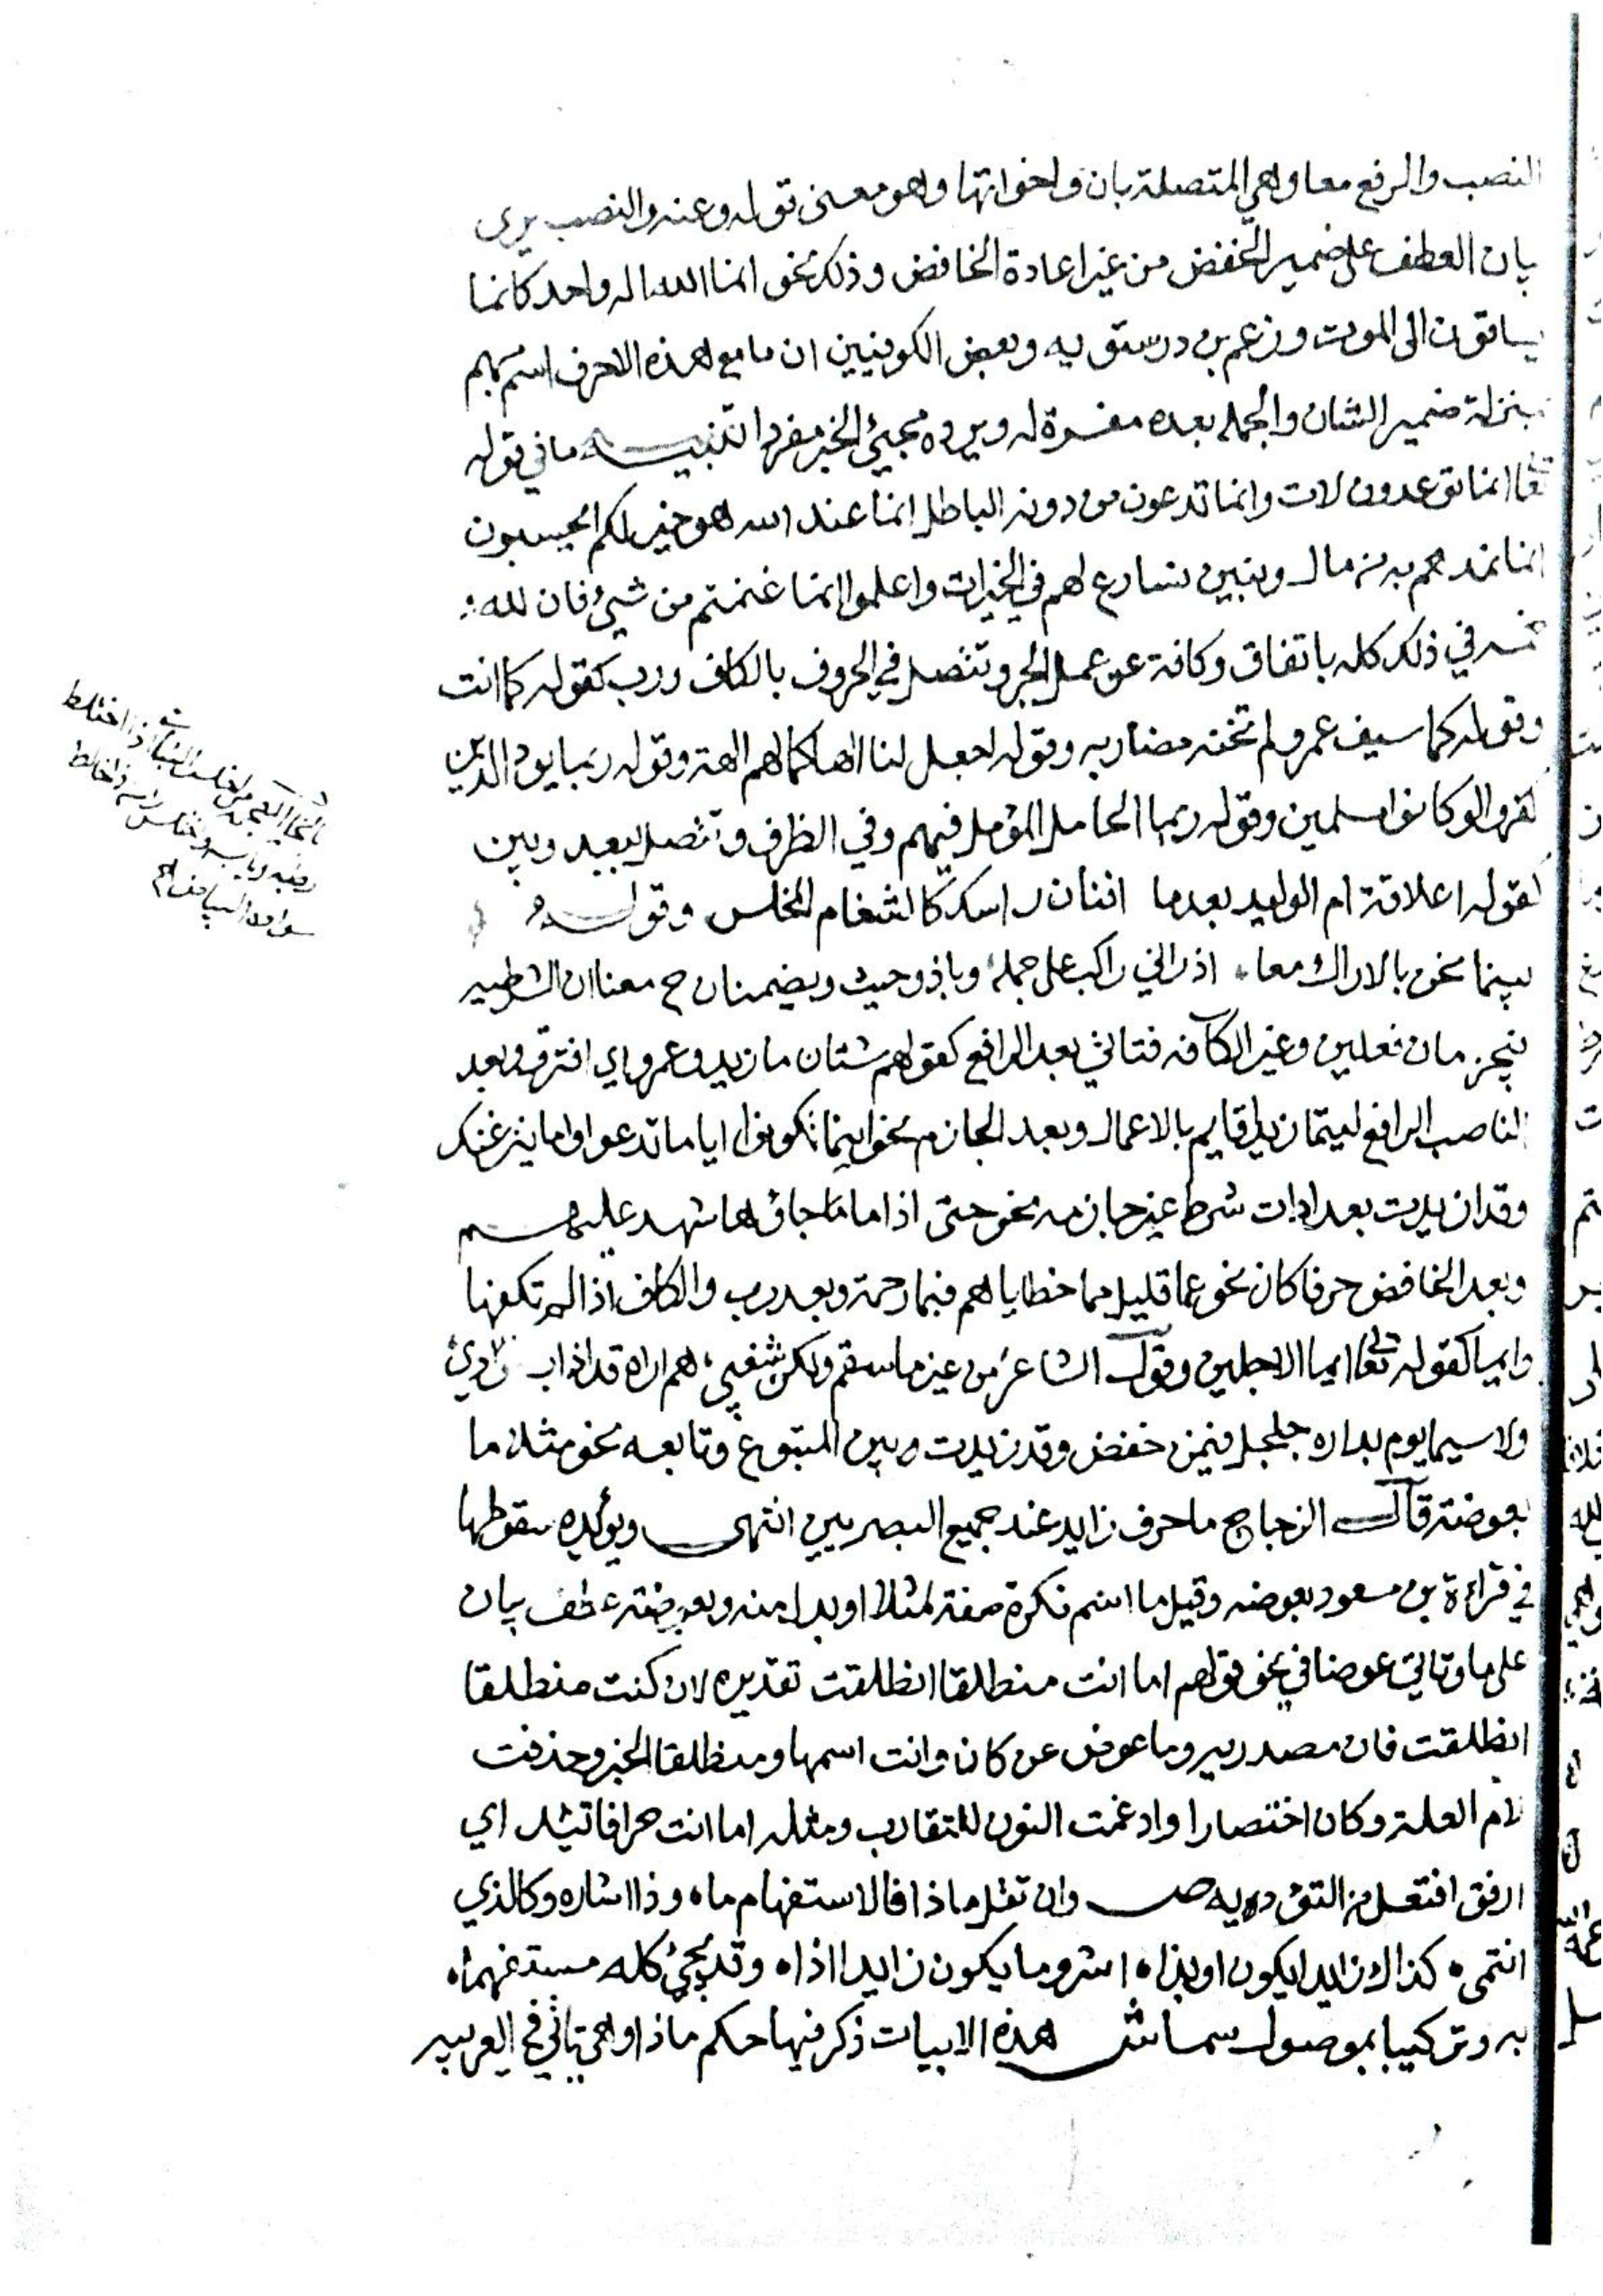 النصب والرفع معا وهي المتصلة بان واخواتها وهو معنى قوله وعنه والنصب يرى
بان العطف على ضمير الخفض من غير اعادة الخافض وذلك نحو انما الله اله واحد كانما
يساقون الى الموت وزعم بن درستويه وبعض الكوفيين ان ما مع هذه الاحرف اسم مبهم
بمنزلة ضمير الشان والجمله بعده مفسرة له ويرده مجيئ الخبر مفردا تنبيه ما في قوله
تعا انما توعدون لات وانما تدعون من دونه الباطل انما عند الله هو خير لكم ايحسبون
انما نمدهم به من مال وبنين نسارع لهم في الخيرات واعلموا انما غنمتم من شيئ فان لله
خمسه في ذلك كله باتفاق وكافة عن عمل الجر وتتصل في الحروف بالكاف ورب كقوله كما انت
وقوله كما سيف عمرو لم تخنه مضاربه وقوله اجعل لنا الها كما لهم الهة وقوله ربما يود الذين
كفروا لو كانوا مسلمين وقوله ربما الحامل المؤمل فيهم وفي الظرف وتتصل ببعد وبين
كقوله اعلاقة ام الوليد بعدما افنان راسك كالثغام المخلس وقوله
بينما نحن بالاراك معا اذ اتي راكب على جمله وباذ وحيث ويضمنان ح معنا ان الشرطيه
فيجزمان فعلين وغير الكافه فتاتي بعد الرافع كقولهم شتان ما زيد وعمرو اي افترقا وبعد
الناصب الرافع ليتما زيدا قايم بالاعمال وبعد الجازم نحو اينما تكونوا ايا ما تدعوا واما ينزغنك
وقد ازيدت بعد ادات شرط غير جازمه نحو حتى اذا ما جاؤها شهد عليهم
وبعد الخافض حرفا كان نحو عما قليل مما خطاياهم فبما رحمة وبعد رب والكاف اذا لم تكفها
وايا كقوله تعا ايما الاجلين وقول الشاعر من غير ما سقم ولكن شفني هم اراه قد اذاب فؤادي
ولا سيما يوم بداره جلجل فيمن خفض وقد زيدت وبين المتبوع وتابعه نحو مثلا ما
بعوضة قال الزجاج ما حرف زايد عند جميع البصريين انتهى ويؤيده سقوطها
في قراءة بن مسعود بعوضه وقيل ما اسم نكرة صفة لمثلا او بدل منه وبعوضة عطف بيان
على ما وتاتي عوضا في نحو قولهم اما انت منطلقا انطلقت تقديره لان كنت منطلقا
انطلقت فان مصدريه وما عوض عن كان وانت اسمها ومنطلقا الخبر وحذفت
لام العلة وكان اختصارا وادغمت النون للتقارب ومثله اما انت حرا فاتئد اي
ارفق افتعل من التؤده يه ص وان تقل ماذا فالاستفهام ما ه وذا اشاره وكالذي
انتمى ه كذا الا زايدا يكون او بذا ه اشر وما يكون زايدا اذا ه وقد يجئ كله مستفهما ه
به وتركيبا بموصول سما ش هذه الابيات ذكر فيها حكم ماذا وهي تاتي في العربيه